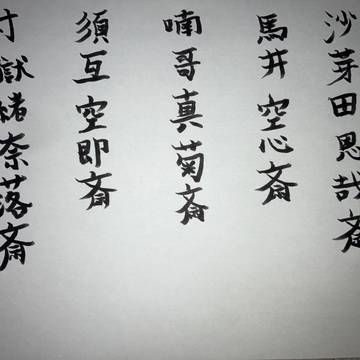 沙芽田恩哉斎
馬井空心斎
喃哥真菊斎
須互空即斎
獄緒奈落斎